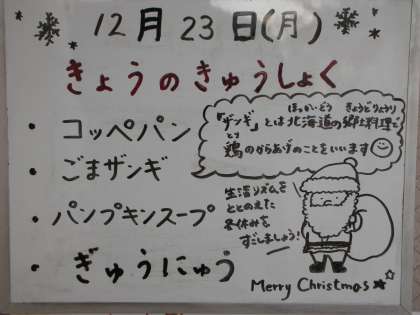 12月23日(月)
きょうのきゅうしょく
・コッペパン
・ごまザンギ
・パンプキンスープ
・ぎゅうにゅう
ほっかいどう きょうどりょうり
「ザンギ」とは北海道の郷土料理で
とり
鶏のからあげのことをいいます
生活リズムを
ととのえた
冬休みを
すごしましょう!
Merry Christmas